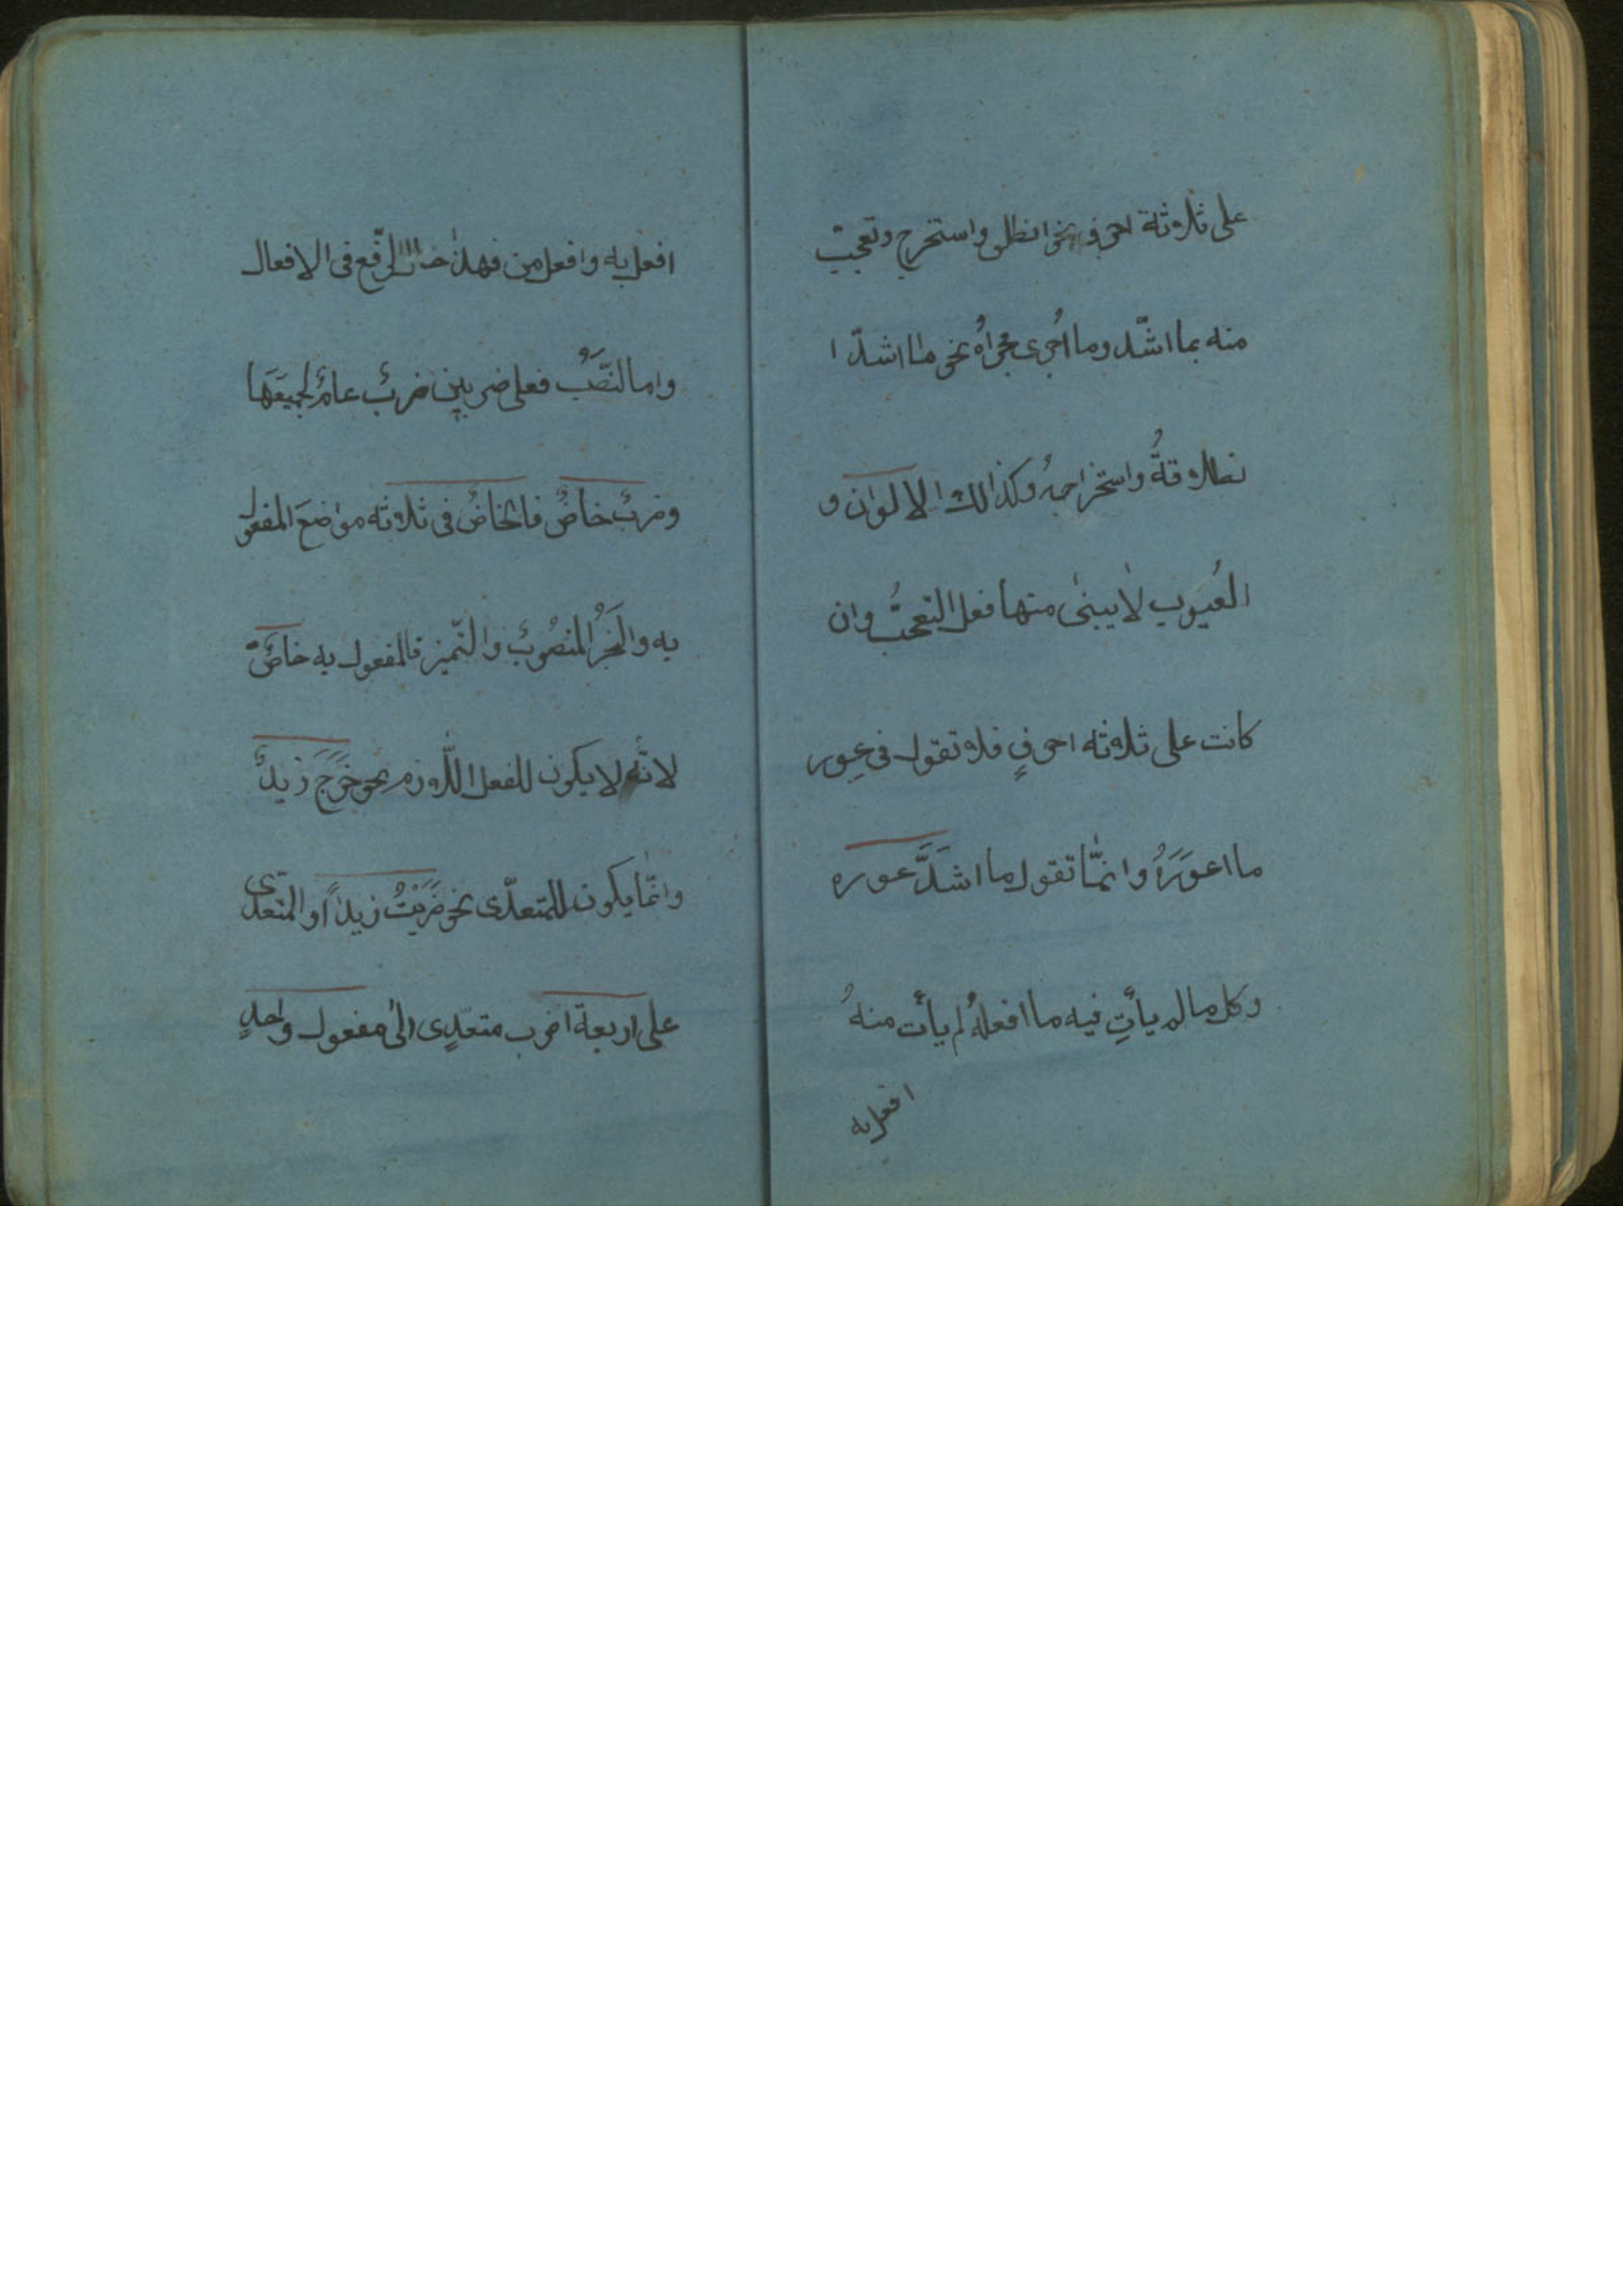 على ثلاثة احرف نحو انطلق واستخرج وتعجب
منه بما اشدّ وما اُجرى مجراهُ نحو ما اشدّ ا
نطلاقهُ واستخراجهُ وكذالك الالوان و
العُيوب لا يبنى منها فعل التعجبُّ وان
كانت على ثلاثه احرفٍ فلا تقول فى عِور
ما اعوَرَهُ وانمّا تقول ما اشدَّ عوره
وكل ما لم يأتِ فيه ما افعلهُ لم يأت منهُ
افعل به
افعل به وافعل من فهذا الرّفع فى الافعال
واما النّصَبُ فعلى ضربين ضربٌ عامٌ لجميَعَها
وضربٌ خاصٌ فالخاصٌ فى ثلاثه مواضعَ المفعول
به والخَبَرُ المنصُوبُ والتّميز فالمفعول به خاصٌّ
لانّه لا يكون للفعل اللّازم نحو خَرَجَ زيدٌ
وانمّا يكون للمتعدّى نحو ضَرَبْتُ زيداً او المتعدّى
على اربعة اضرب متعدّى الى مفعول واحدٍ